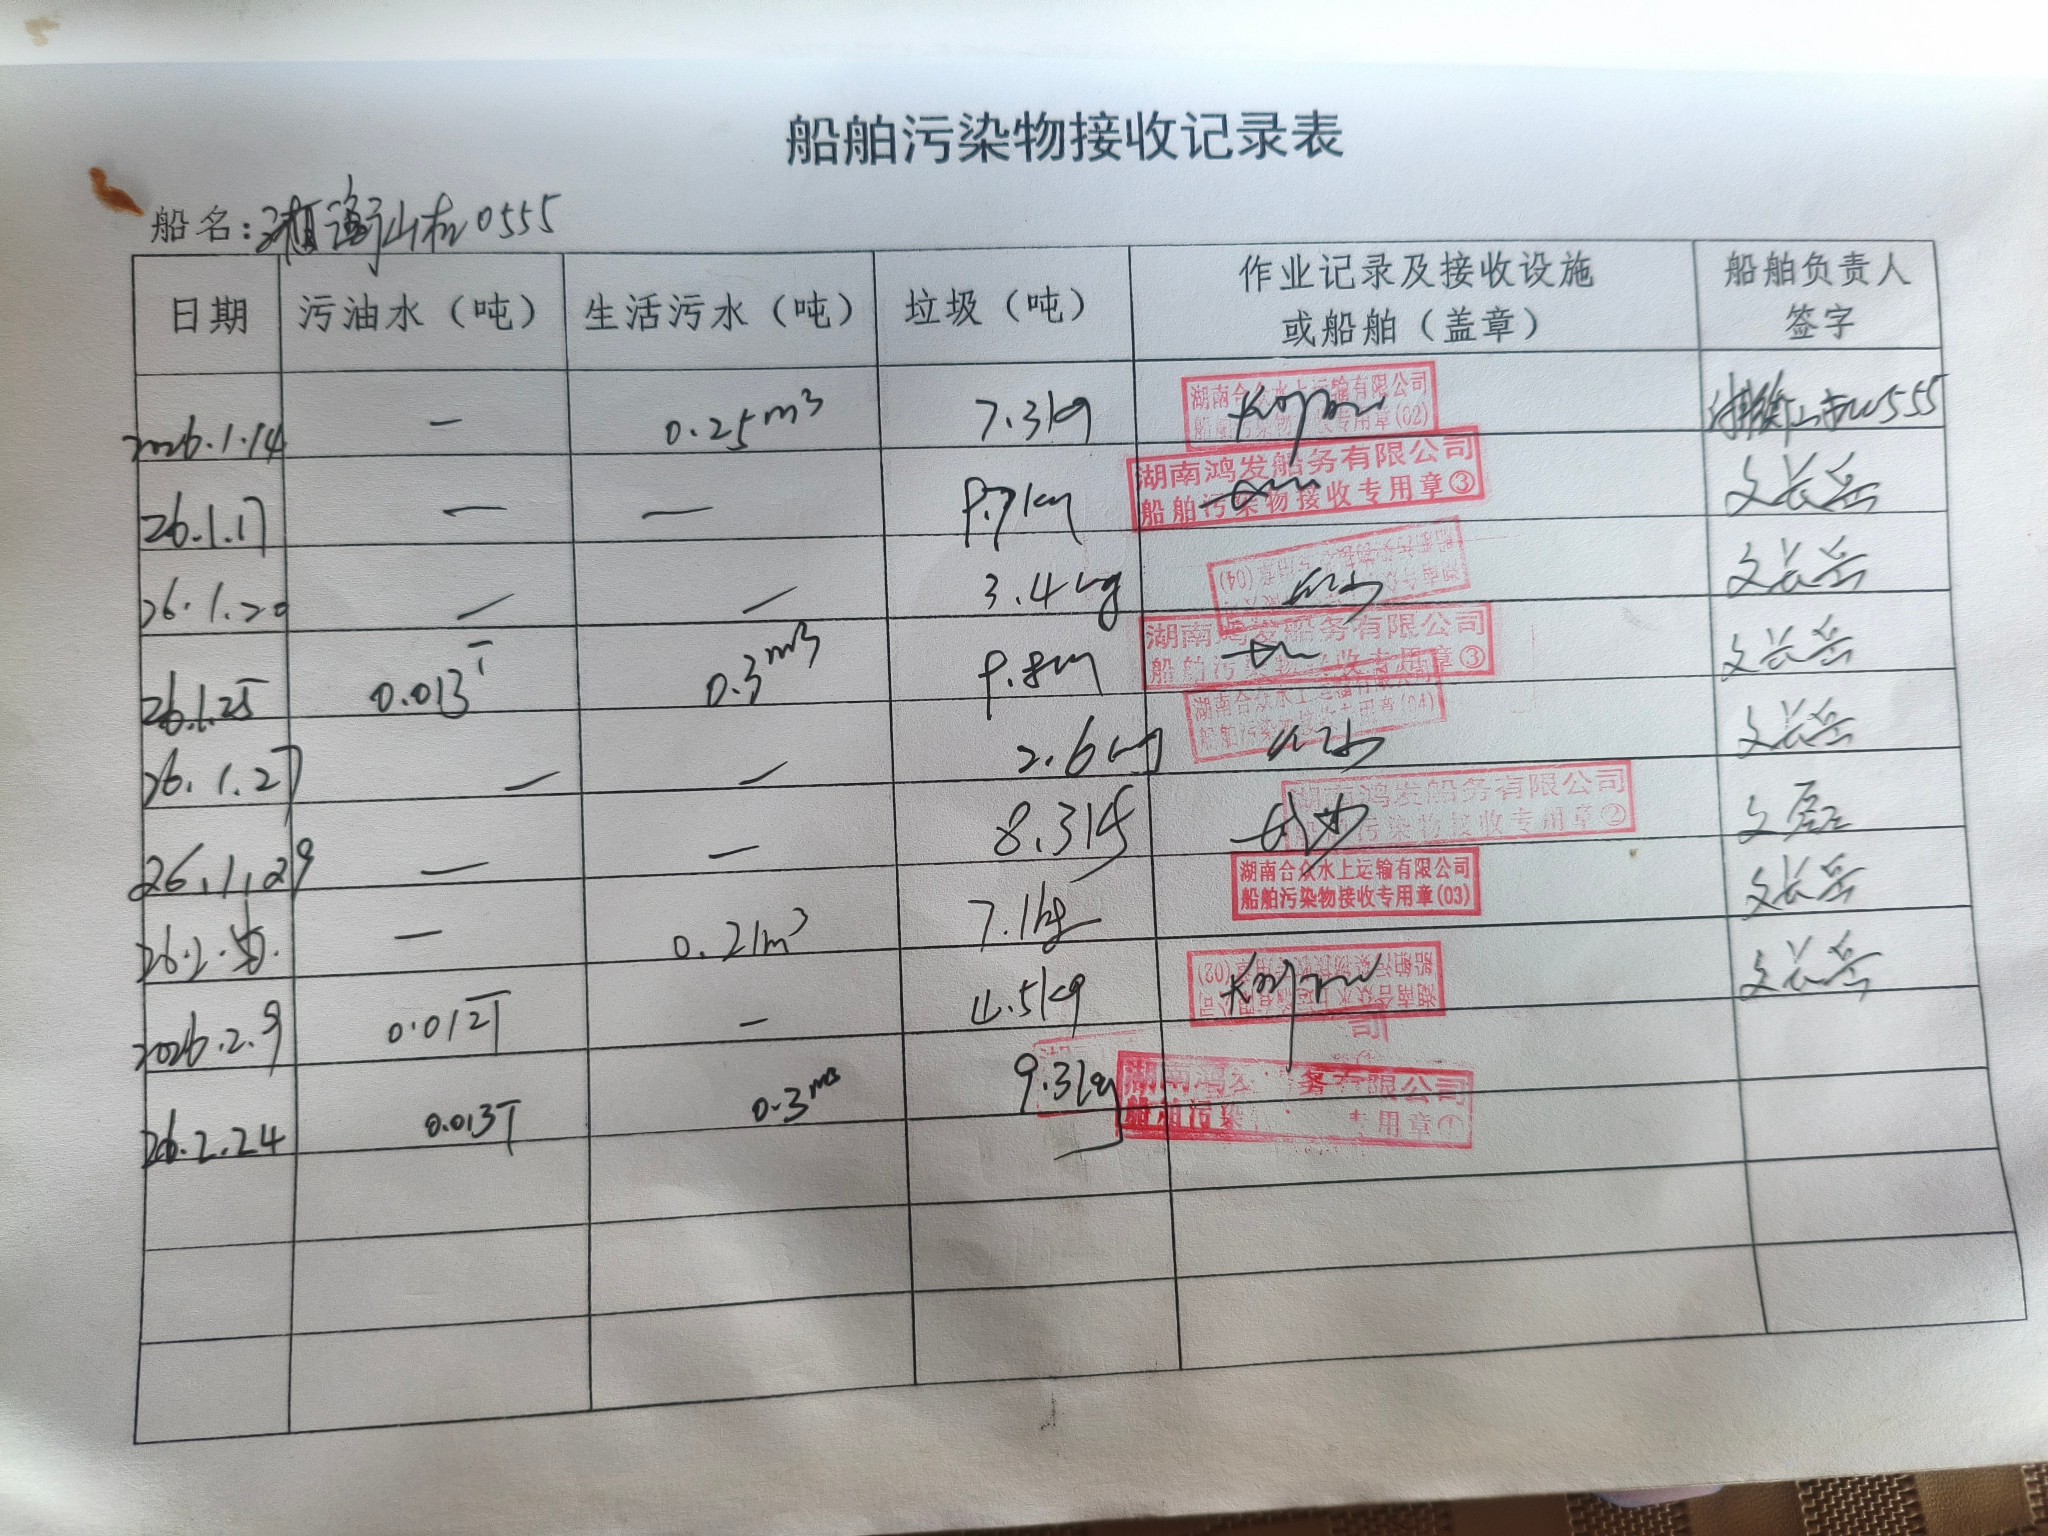 船舶污染物接收记录表
船名: 0555
日期 污油水（吨） 生活污水（吨） 垃圾（吨） 作业记录及接收设施或船舶（盖章） 船舶负责人签字
2026.1.14 — 0.25m³ 7.3kg 湖南合众水上运输有限公司 船舶污染物接收专用章(02)
26.1.17 — — 湖南鸿发船务有限公司 船舶污染物接收专用章③ 文长岳
26.1.20 — — 3.4kg (04) 文长岳
26.1.25 0.013T 0.3m³ 湖南鸿发船务有限公司 船舶污染物接收专用章③ 文长岳
26.1.27 — — 2.6kg 湖南合众水上运输有限公司 船舶污染物接收专用章(04) 文长岳
26.1.29 — — 8.3kg 湖南鸿发船务有限公司 船舶污染物接收专用章②
26.2. — 0.21m³ 7.1kg 湖南合众水上运输有限公司 船舶污染物接收专用章(03) 文长岳
2026.2.9 0.012T — 4.5kg 湖南合众水上运输有限公司 船舶污染物接收专用章(02) 文长岳
26.2.24 0.013T 0.3m³ 9.3kg 湖南鸿 务有限公司 船舶污染 专用章①